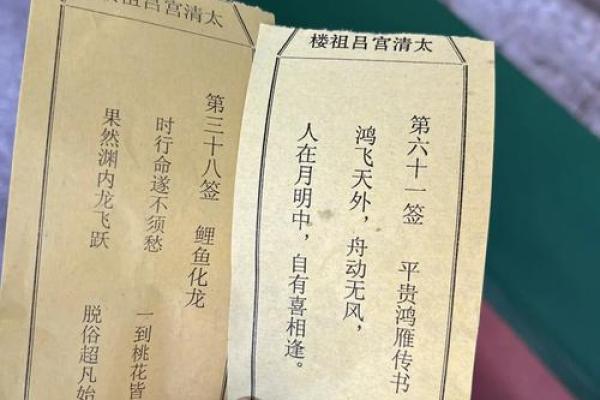 太清宫吕祖楼
第六十一签 平贵鸿雁传书
鸿飞天外，舟动无风，
人在月明中，自有喜相逢。
太清宫吕祖
第三十八签 鲤鱼化龙
时行命遂不须愁 一到桃花皆
果然渊内龙飞跃 脱俗超凡始